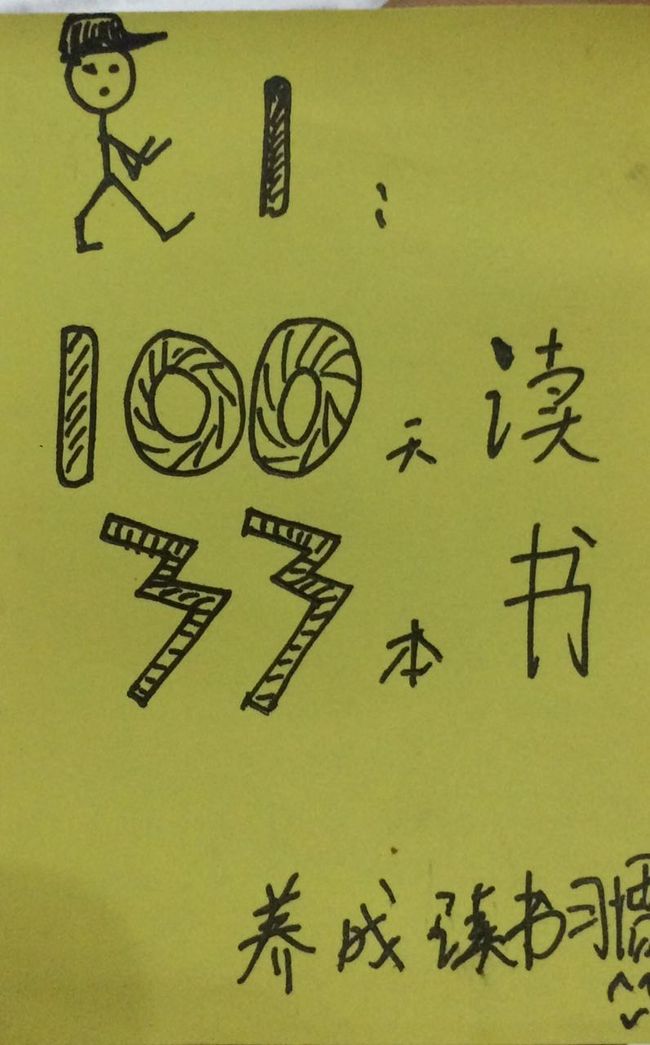 1：
100天读
33本书
养成读书习惯